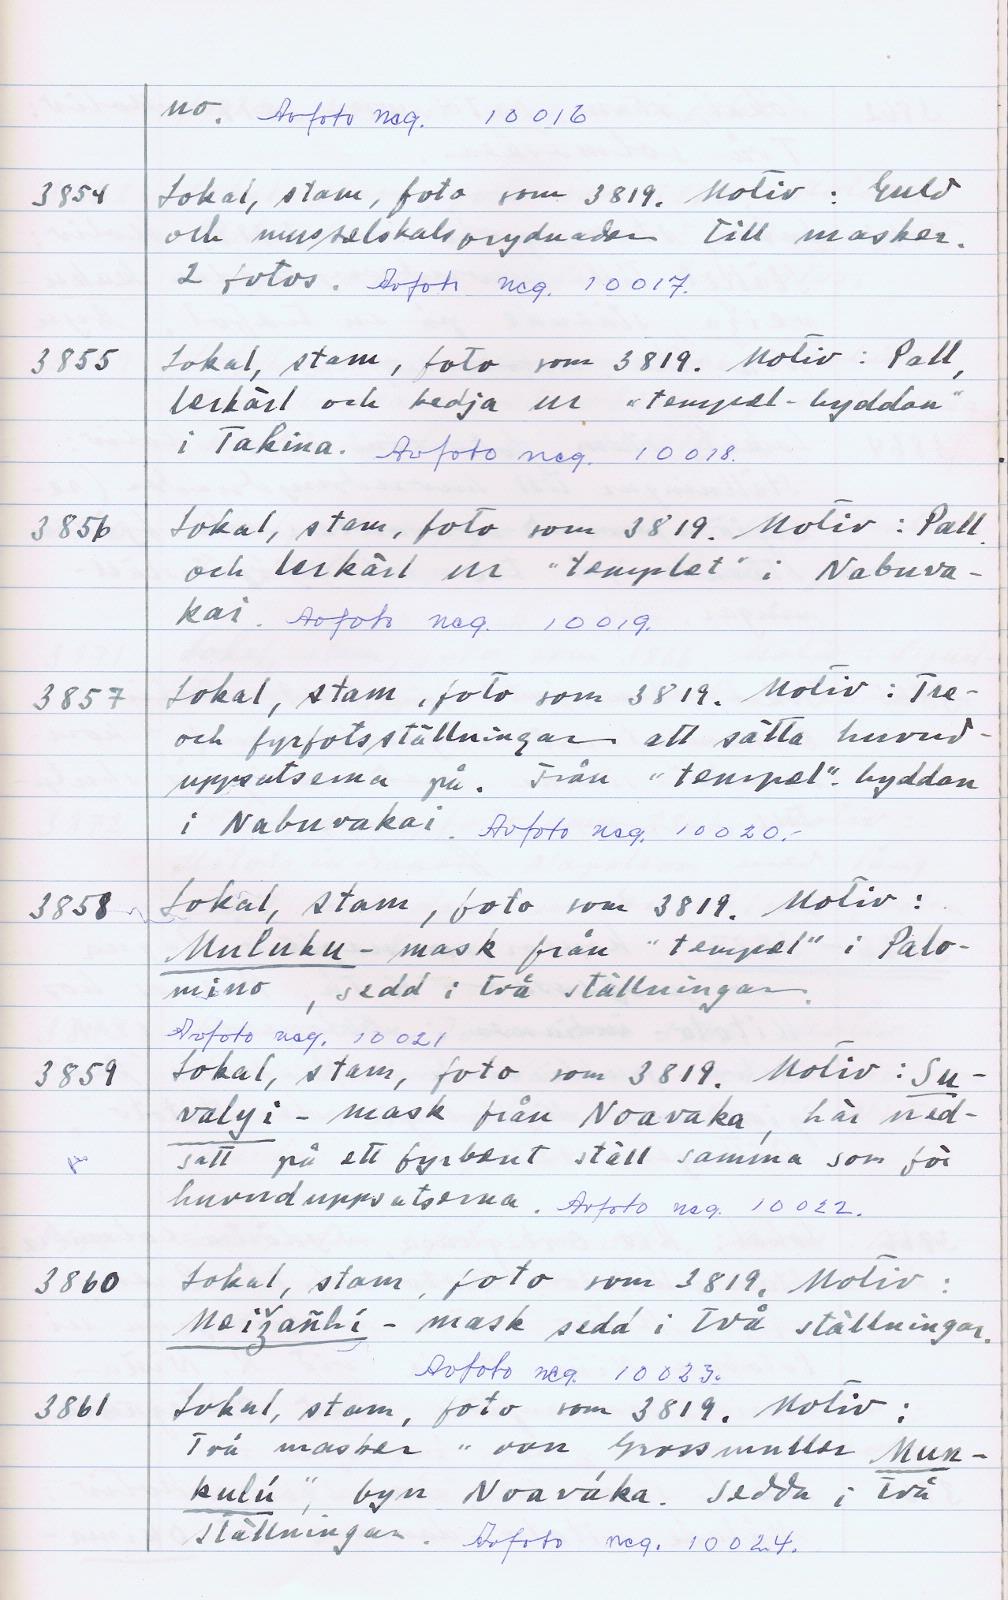 no. Avfoto neg. 10016
3854 Lokal, stam, foto som 3819. Motiv : Guld
och musselskalsprydnader till masker.
2 fotos. Avfoto neg. 10017.
3855 Lokal, stam, foto som 3819. Motiv : Pall,
lerkärl och kedja ur "tempel-hyddan"
i Takina. Avfoto neg. 10018.
3856 Lokal, stam, foto som 3819. Motiv : Pall
och lerkärl ur "templet" i Nabuva-
kai. Avfoto neg. 10019.
3857 Lokal, stam, foto som 3819. Motiv : Tre-
och fyrfotsställningar att sätta huvud-
uppsatserna på. Från "tempel"-hyddan
i Nabuvakai. Avfoto neg. 10020.-
3858 Lokal, stam, foto som 3819. Motiv :
Muluku - mask från "tempel" i Palo-
mino, sedd i två ställningar.
Avfoto neg. 10021
3859 Lokal, stam, foto som 3819. Motiv : Su-
valyi - mask från Noavaka, här ned-
satt på ett fyrbent ställ samma som för
huvuduppsatserna. Avfoto neg. 10022.
3860 Lokal, stam, foto som 3819. Motiv :
Meižañhí - mask sedd i två ställningar.
Avfoto neg. 10023.
3861 Lokal, stam, foto som 3819. Motiv :
Två masker "von Grossmutter Mun-
kulú", byn Noaváka. Sedda i två
ställningar. Avfoto neg. 10024.